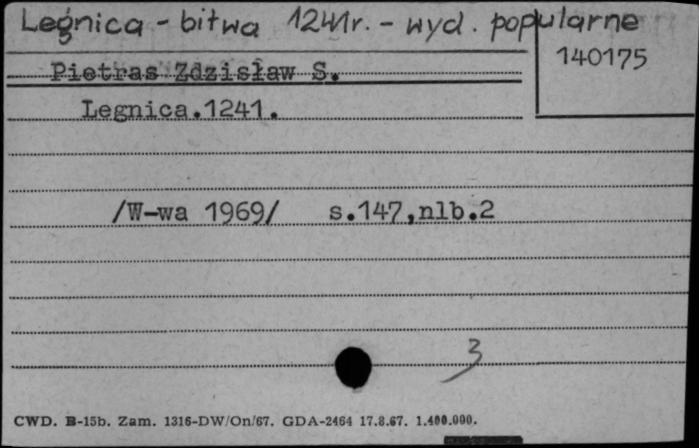 Legnica - bitwa 1241r. - wyd. popularne
140175
Pietras Zdzisław S.
Legnica.1241.
/W-wa 1969/ s.147,nlb.2
3
CWD. B-15b. Zam. 1316-DW/On/67. GDA-2464 17.8.67. 1.400.000.